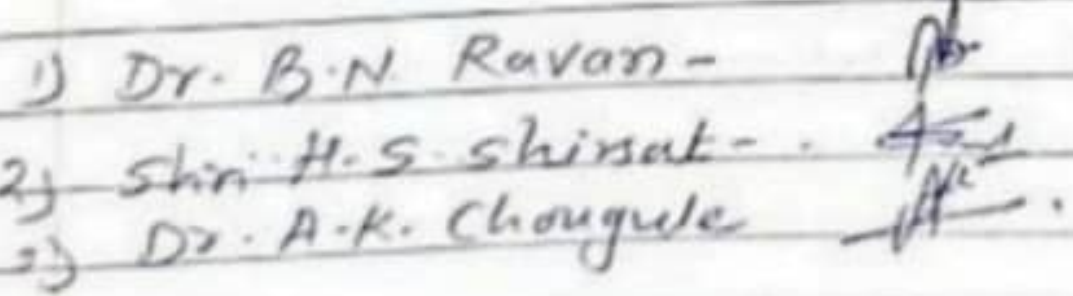 1) Dr. B.N. Ravan -
2) Shri H.S. Shirsat -
3) Dr. A.K. Chougule